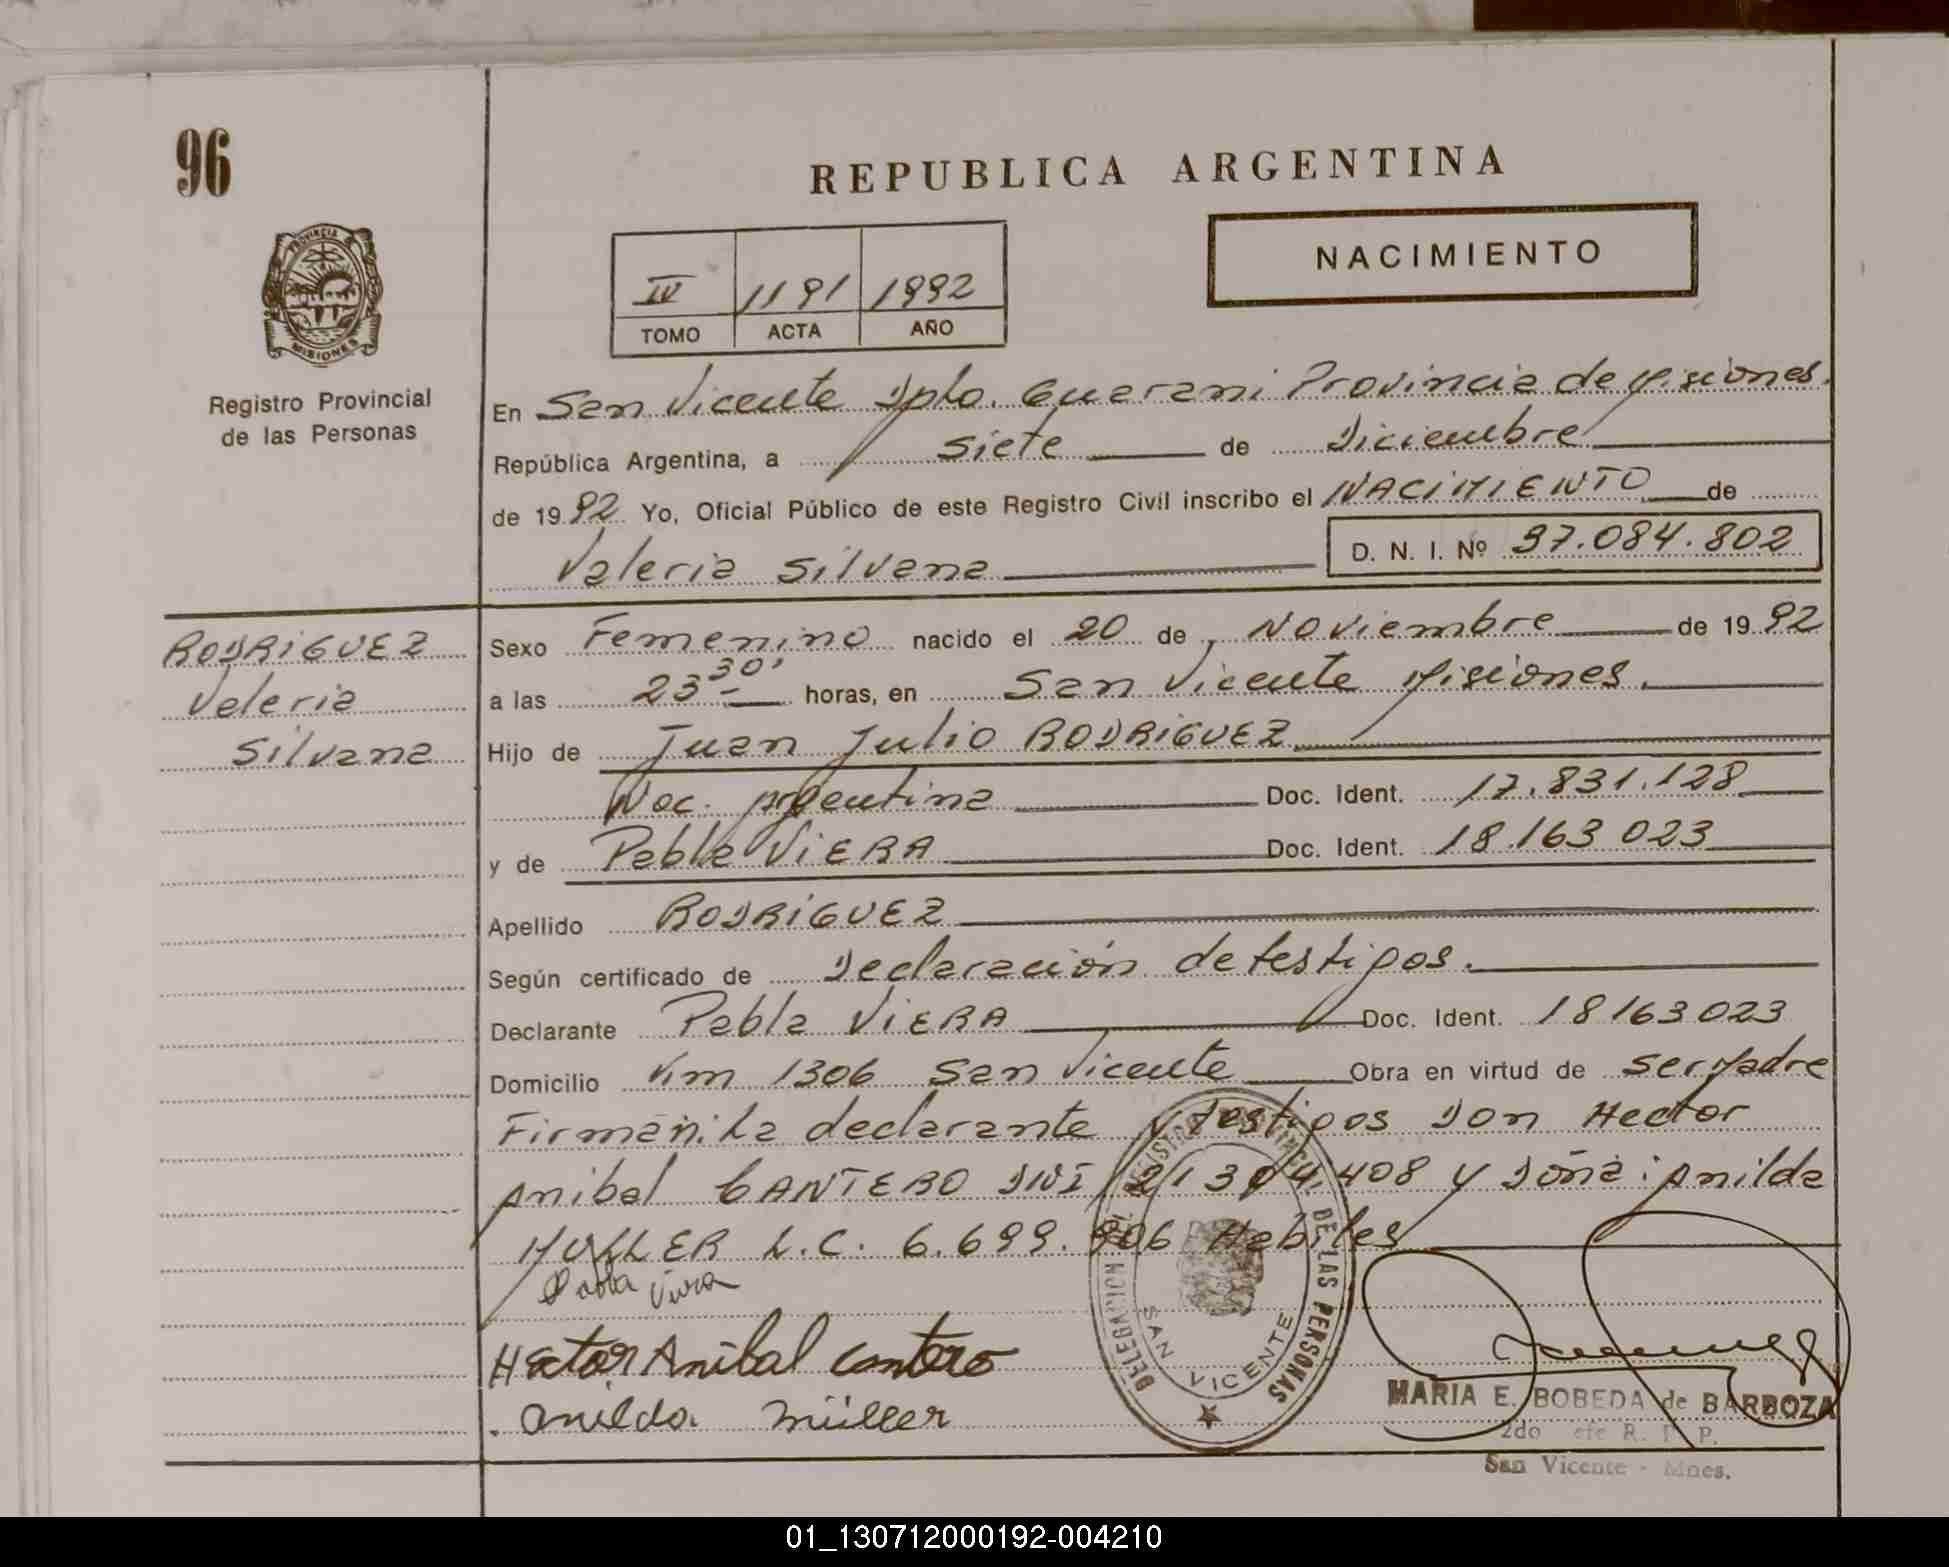 96
REPUBLICA ARGENTINA
NACIMIENTO
IV 1191 1992
TOMO ACTA AÑO
PROVINCIA
MISIONES
Registro Provincial
de las Personas
En San Vicente Dpto. Guarani Provincia de Misiones.
República Argentina, a Siete de Diciembre
de 1992 Yo, Oficial Público de este Registro Civil inscribo el NACIMIENTO de
Valeria Silvana D. N. I. Nº 37.084.802
RODRIGUEZ
Valeria
Silvana
Sexo Femenino nacido el 20 de Noviembre de 1992
a las 23 30' horas, en San Vicente Misiones.
Hijo de Juan Julio RODRIGUEZ
Nac. Argentina Doc. Ident. 17.831.128
y de Pabla VIERA Doc. Ident. 18.163 023
Apellido RODRIGUEZ
Según certificado de Declaración de testigos.
Declarante Pabla VIERA Doc. Ident. 18163023
Domicilio Km 1306 San Vicente Obra en virtud de ser Madre
Firman: La declarante y testigos Don Hector
Anibal CANTERO DNI 21304.408 y Doña: Anilda
MULLER L.C. 6.699.906 Habiles
Pabla Viera
Hector Anibal Cantero
Anilda Müller
DELEGACION DEL REGISTRO PROVINCIAL DE LAS PERSONAS
SAN VICENTE
MARIA E. BOBEDA de BARBOZA
2do efe R. P. P.
San Vicente - Mnes.
01_130712000192-004210